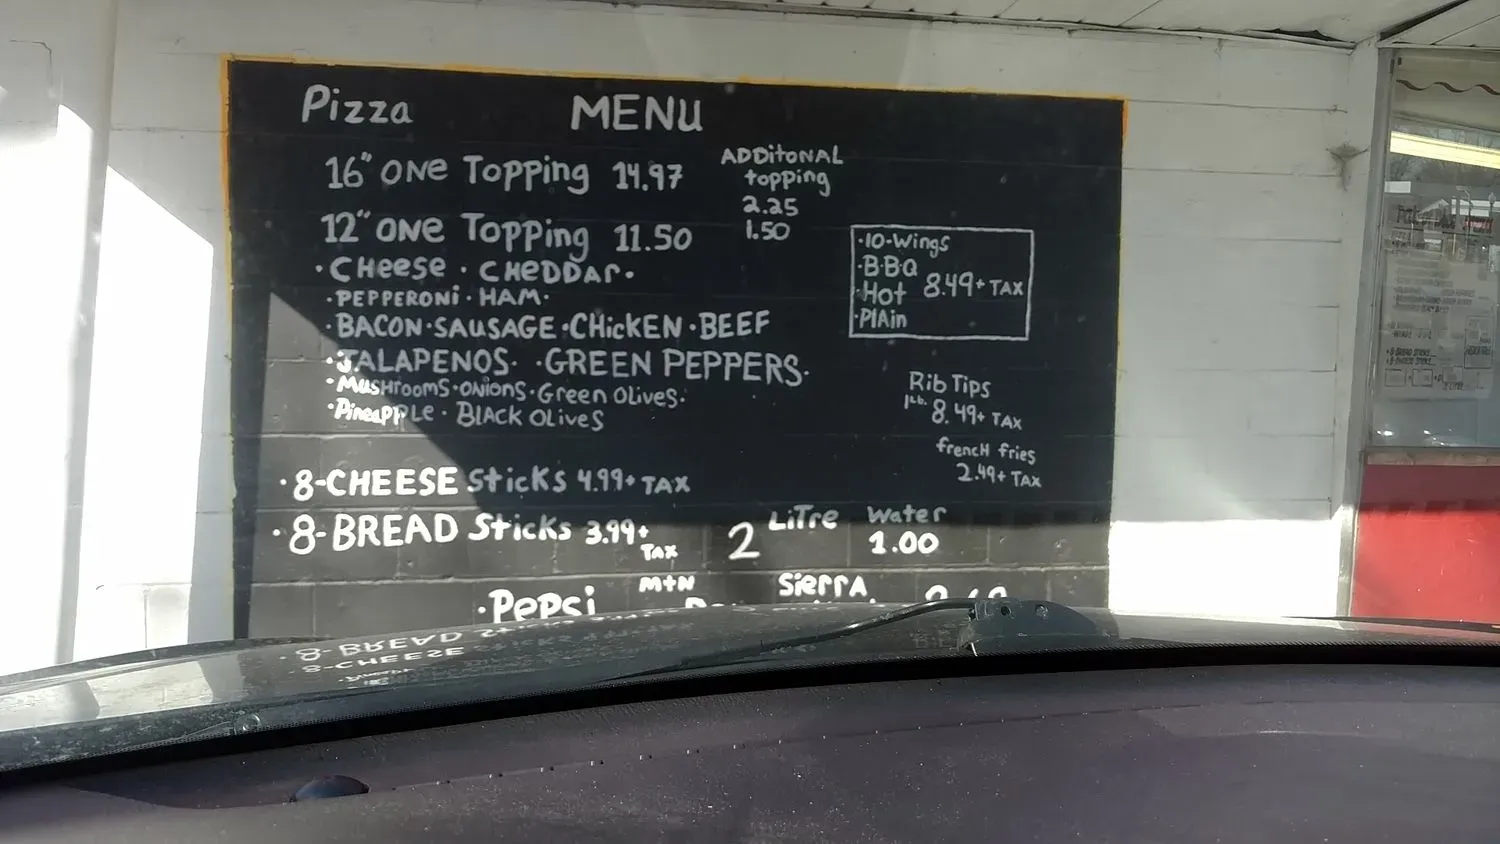 Pizza MENU
16" ONE Topping 14.97
ADDitONAL
topping
2.25
12" ONE Topping 11.50
1.50
·CHeese · CHeDDAr·
·PEPPERONi · HAM·
·BACON·SAUSAGE·CHickEN·BEEF
·JALAPENOS· ·GREEN PEPPERS·
·MusHrooMS·ONiONS·Green OLives·
·PineApple · BLACK OLiveS
·10-Wings
·B·B·Q
·Hot 8.49+ TAX
·PlAin
Rib Tips
1Lb. 8.49+ TAX
frencH fries
2.49+ TAX
·8-CHEESE SticKs 4.99+ TAX
·8-BREAD Sticks 3.99+ TAX
2 LiTre Water
1.00
·PePSi MTN SierrA